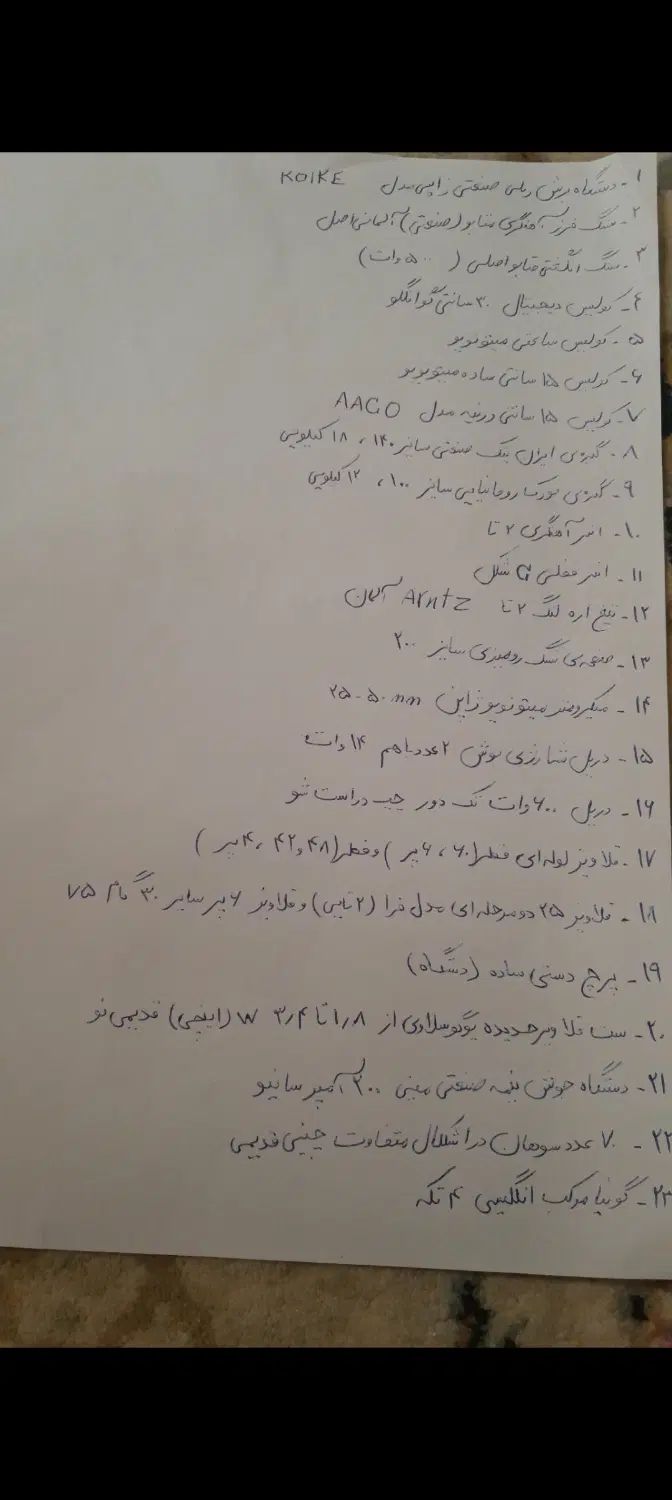 ۱- دستگاه برش ریلی صنعتی ژاپنی مدل KOIKE
۲- سنگ فرز آهنگری متابو (صنعتی) آلمانی اصل
۳- سنگ انگشتی متابو اصلی (۵۰۰ وات)
۴- کولیس دیجیتال ۳۰ سانتی گوانگلو
۵- کولیس ساعتی میتوتویو
۶- کولیس ۱۵ سانتی ساده میتوتویو
۷- کولیس ۱۵ سانتی ورنیه مدل AAGO
۸- گیره‌ی ایران پتک صنعتی سایز ۱۴۰، ۱۸ کیلویی
۹- گیره‌ی یورک رومانیایی سایز ۱۰۰، ۱۲ کیلویی
۱۰- انبر آهنگری ۲ تا
۱۱- انبر قفلی G شکل
۱۲- تیغ اره لنگ ۲ تا Arntz آلمان
۱۳- صفحه‌ی سنگ رومیزی سایز ۲۰۰
۱۴- میکرومتر میتوتویو ژاپن ۲۵-۵۰ mm
۱۵- دریل شارژی بوش ۲ عدد باهم ۱۴ وات
۱۶- دریل ۶۰۰ وات تک دور چپ و راست شو
۱۷- قلاویز لوله‌ای قطر (۶۰، ۶ پر) و قطر (۴۸ و ۴۲، ۴ پر)
۱۸- قلاویز ۲۵ دو مرحله‌ای مدل فرا (۲ تایی) و قلاویز ۶ پر سایز ۳۰ گام ۷۵
۱۹- پرچ دستی ساده (دستگاه)
۲۰- ست قلاویز حدیده یوگوسلاوی از ۱/۸ تا ۳/۴ W (اینچی) قدیمی نو
۲۱- دستگاه جوش نیمه صنعتی مینی ۲۰۰ آمپر سانیو
۲۲- ۷ عدد سوهان در اشکال متفاوت چینی قدیمی
۲۳- گونیا مرکب انگلیسی ۴ تکه